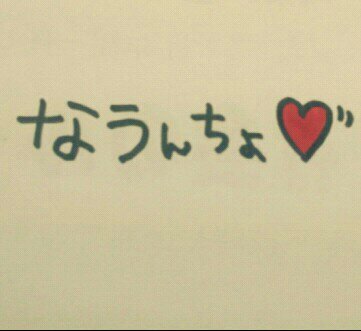 なうんちょ♥